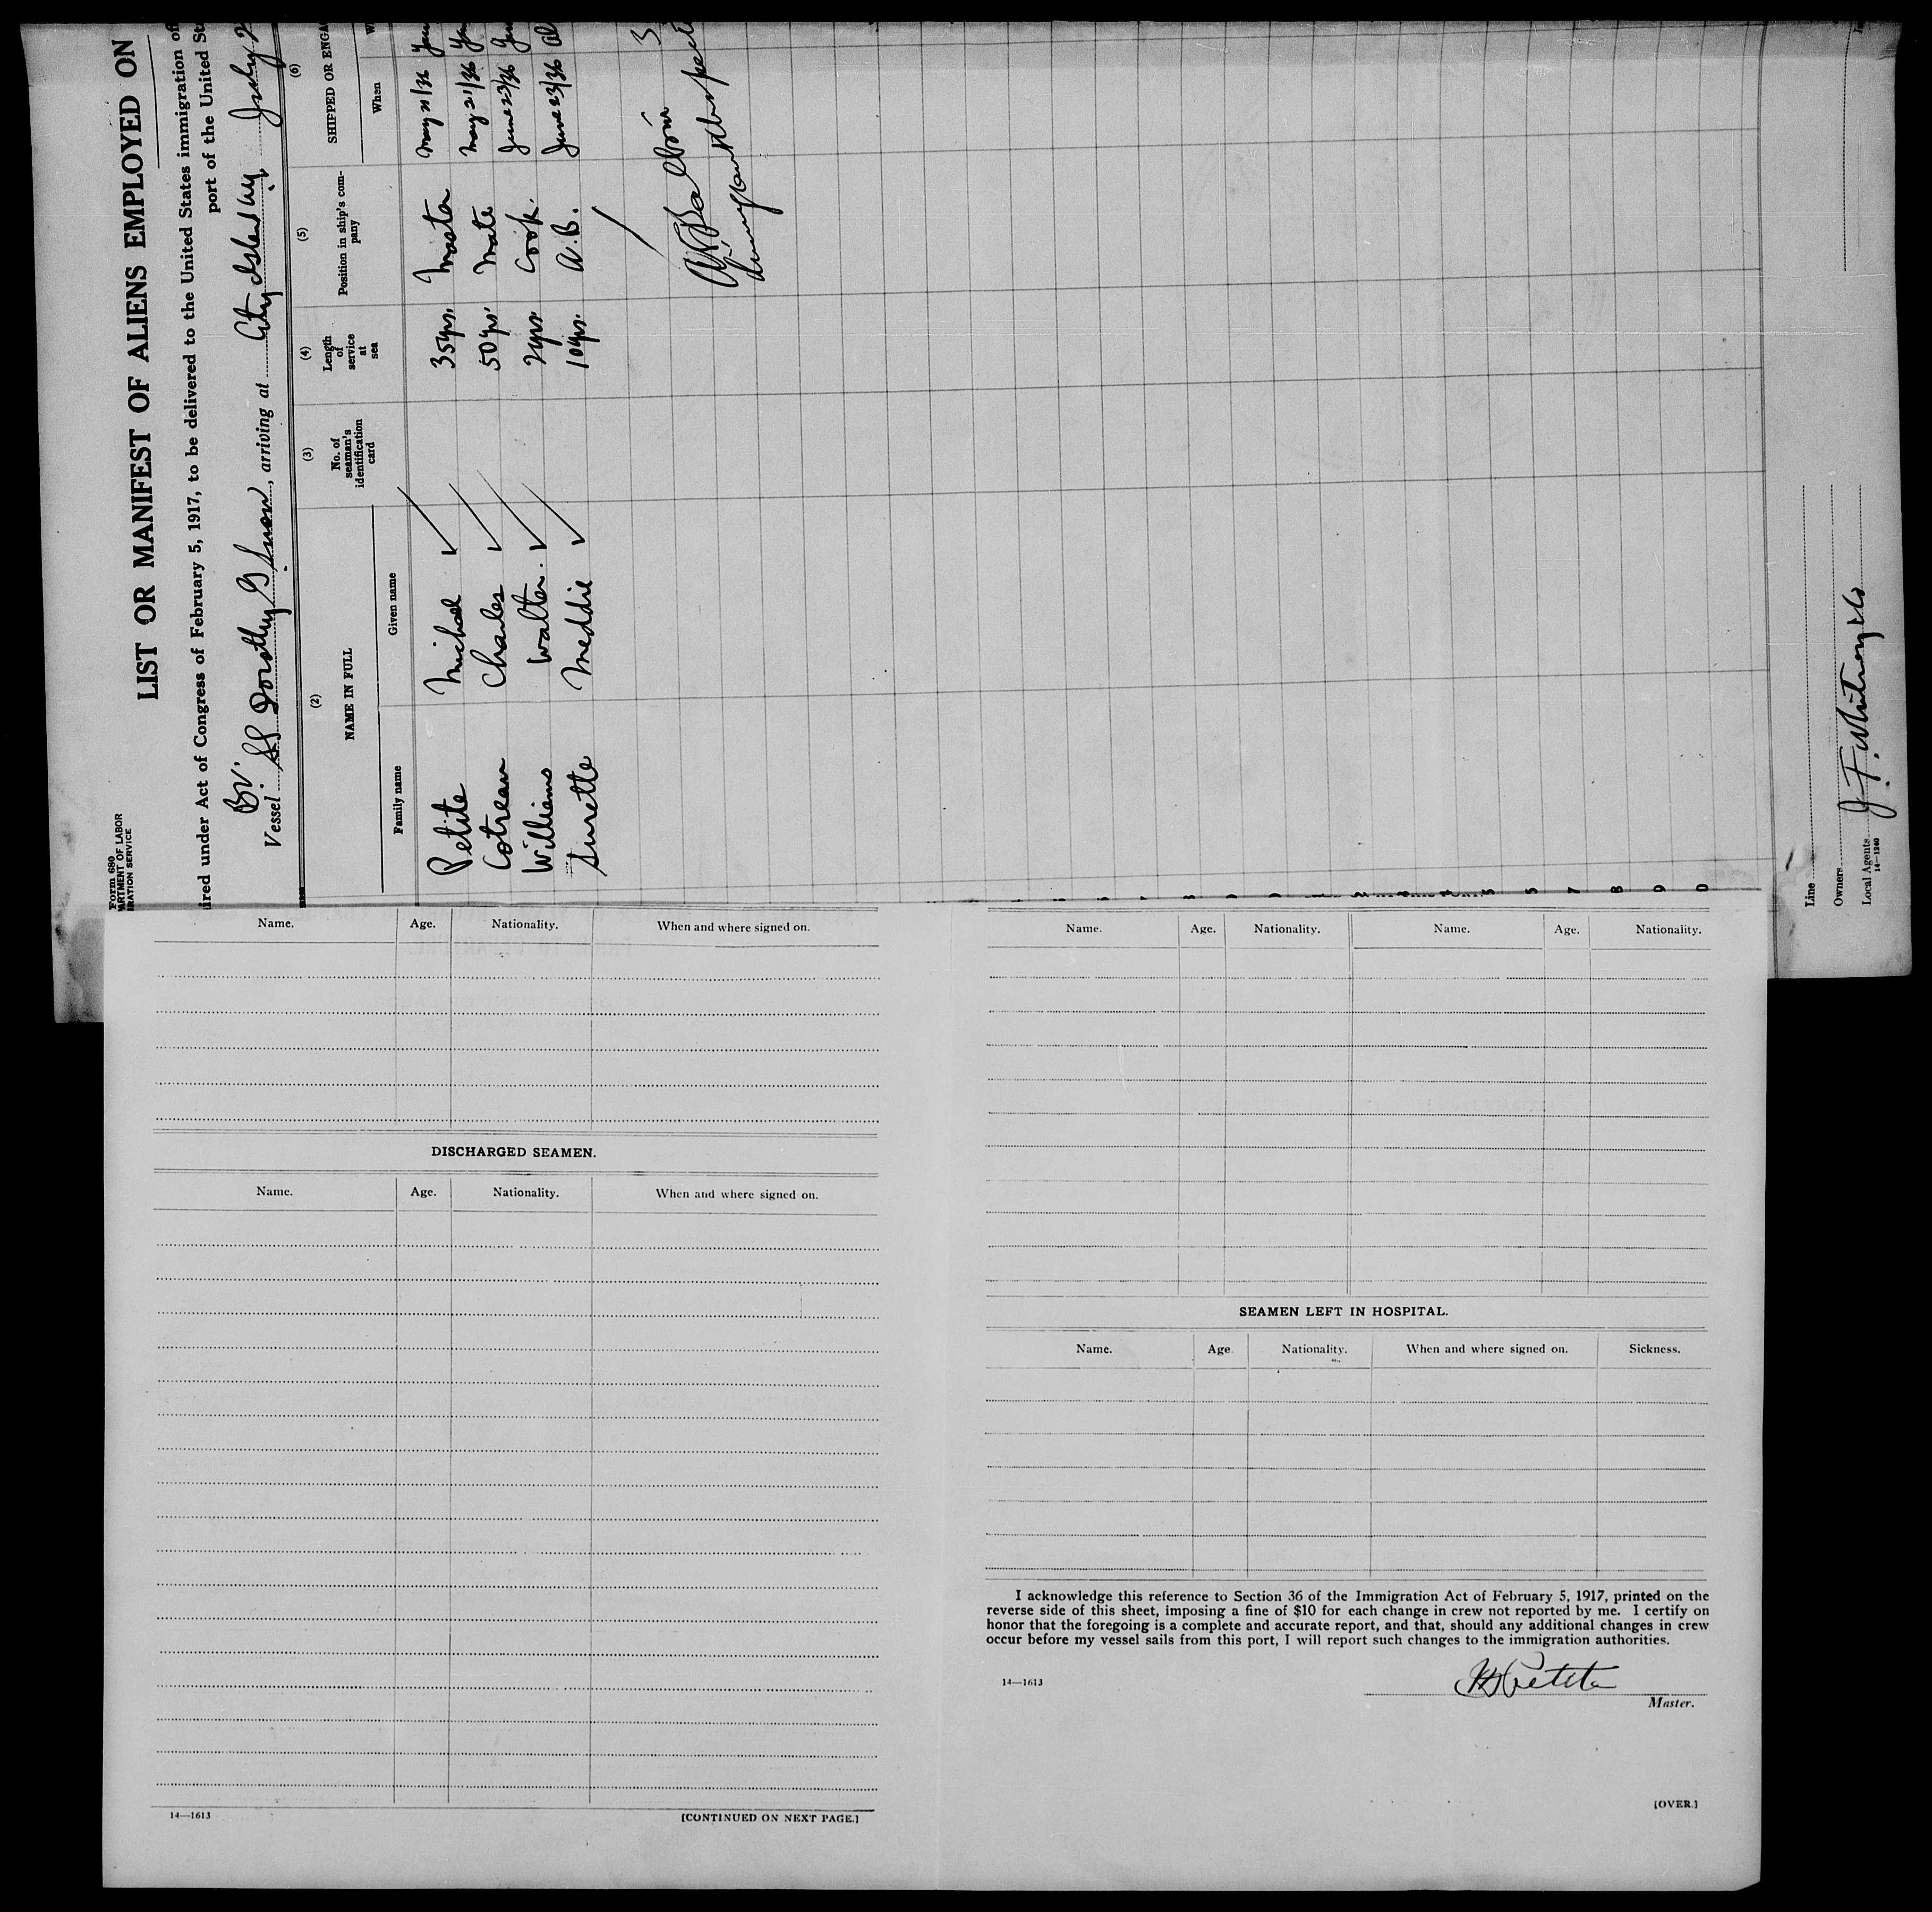 Form 680
ARTMENT OF LABOR
RATION SERVICE
LIST OR MANIFEST OF ALIENS EMPLOYED ON
ired under Act of Congress of February 5, 1917, to be delivered to the United States immigration of
port of the United St
Br.
Vessel SS Dorothy G Snow, arriving at City Island N.Y. July 2
(2) (3) (4) (5) (6)
NAME IN FULL
Family name Given name
No. of seaman's identification card
Length of service at sea
Position in ship's company
SHIPPED OR ENGA
When W
Petite Michael 35 yrs. Master May 21/36
Cotreau Charles 50 yrs. Mate May 21/36
Williams Walter. 2 yrs. Cook. June 23/36
Surette Meddie 10 yrs. A.B. June 23/36
3
Line
Owners
Local Agents J. F. Whitney & Co
14—1240
Name. Age. Nationality. When and where signed on.
DISCHARGED SEAMEN.
Name. Age. Nationality. When and where signed on.
14—1613
[CONTINUED ON NEXT PAGE.]
Name. Age. Nationality. Name. Age. Nationality.
SEAMEN LEFT IN HOSPITAL.
Name. Age. Nationality. When and where signed on. Sickness.
I acknowledge this reference to Section 36 of the Immigration Act of February 5, 1917, printed on the
reverse side of this sheet, imposing a fine of $10 for each change in crew not reported by me. I certify on
honor that the foregoing is a complete and accurate report, and that, should any additional changes in crew
occur before my vessel sails from this port, I will report such changes to the immigration authorities.
14—1613
Petite
Master.
[OVER.]